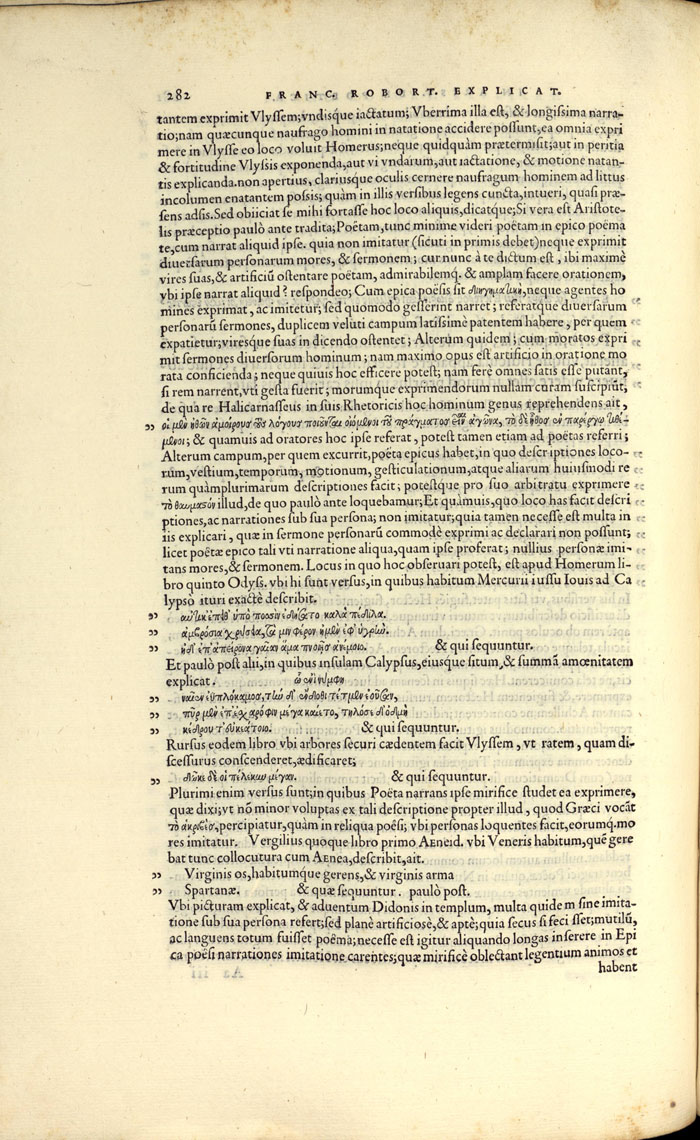 282 FRANC. ROBORT. EXPLICAT.
tantem exprimit Vlyssem; vndisque iactatum; Vberrima illa est, & longissima narra-
tio; nam quæcunque naufrago homini in natatione accidere possunt, ea omnia expri
mere in Vlysse eo loco voluit Homerus; neque quidquàm prætermisit; aut in peritia
& fortitudine Vlyssis exponenda, aut vi vndarum; aut iactatione, & motione natan-
tis explicanda. non apertius, clariusque oculis cernere naufragum hominem ad littus
incolumen enatantem possis; quàm in illis versibus legens cuncta, intueri, quasi præ-
sens adsis. Sed obiiciat se mihi fortasse hoc loco aliquis, dicatque; Si vera est Aristote-
lis præceptio paulò ante tradita; Poëtam, tunc minime videri poëtam in epico poëma
te, cum narrat aliquid ipse. quia non imitatur (sicuti in primis debet) neque exprimit
diuersarum personarum mores, & sermonem; cur nunc à te dictum est, ibi maximè
vires suas, & artificiū ostentare poëtam, admirabilemq. & amplam facere orationem,
vbi ipse narrat aliquid? respondeo; Cum epica poësis sit διηγηματικὴ, neque agentes ho
mines exprimat, ac imitetur; sed quomodo gesserint narret; referatque diuersarum
personarū sermones, duplicem veluti campum latissimè patentem habere, per quem
expatietur; viresque suas in dicendo ostentet; Alterum quidem; cum moratos expri
mit sermones diuersorum hominum; nam maximo opus est artificio in oratione mo
rata conficienda; neque quiuis hoc efficere potest; nam ferè omnes satis esse putant,
si rem narrent, vti gesta fuerit; morumque exprimendorum nullam curam suscipiūt;
de qua re Halicarnasseus in suis Rhetoricis hoc hominum genus reprehendens ait,
” οἱ μὲν ἠθῶν ἀμοίρους τοὺς λόγους ποιοῦνται οἰόμενοι τοῦ πράγματος εἶναι ἀγῶνα, τὸ δὲ ἦθος ἐν παρέργῳ τιθέ-
μενοι; & quamuis ad oratores hoc ipse referat, potest tamen etiam ad poëtas referri;
Alterum campum, per quem excurrit, poëta epicus habet, in quo descriptiones loco-
rum, vestium, temporum, motionum, gesticulationum, atque aliarum huiusmodi re
rum quàmplurimarum descriptiones facit; potestque pro suo arbitratu exprimere
τὸ θαυμαστόν illud, de quo paulò ante loquebamur; Et quamuis, quo loco has facit descri
ptiones, ac narrationes sub sua persona; non imitatur; quia tamen necesse est multa in
iis explicari, quæ in sermone personarū commodè exprimi ac declarari non possunt;
licet poëtæ epico tali vti narratione aliqua, quam ipse proferat; nullius personæ imi-
tans mores, & sermonem. Locus in quo hoc obseruari potest, est apud Homerum li-
bro quinto Odyss. vbi hi sunt versus, in quibus habitum Mercurii iussu Iouis ad Ca
lypso ituri exactè describit.
” αὐτίκ’ ἔπειθ’ ὑπὸ ποσσὶν ἐδήσατο καλὰ πέδιλα.
” ἀμβρόσια χρύσεια, τά μιν φέρον ἠμὲν ἐφ’ ὑγρὴν.
” ἠδ’ ἐπ’ ἀπείρονα γαῖαν ἅμα πνοιῇς ἀνέμοιο. & qui sequuntur.
Et paulò post alii, in quibus insulam Calypsus, eiusque situm, & summā amœnitatem
explicat. ᾧ ἔνι νύμφη
” ναῖεν ἐϋπλόκαμος, τὴν δ’ ἔνδοθι τέτμεν ἐοῦσαν,
” πῦρ μὲν ἐπ’ ἐσχαρόφιν μέγα καίετο, τηλόσε δ’ ὀδμὴ
” κέδρου τ’ εὐκεάτοιο. & qui sequuntur.
Rursus eodem libro vbi arbores securi cædentem facit Vlyssem, vt ratem, quam di-
scessurus conscenderet, ædificaret;
” δῶκε δέ οἱ πέλεκυν μέγαν. & qui sequuntur.
Plurimi enim versus sunt; in quibus Poëta narrans ipse mirifice studet ea exprimere,
quæ dixi; vt nō minor voluptas ex tali descriptione propter illud, quod Græci vocāt
τὸ ἀκριβὲς, percipiatur, quàm in reliqua poësi; vbi personas loquentes facit, eorumq. mo
res imitatur. Vergilius quoque libro primo Aeneid. vbi Veneris habitum, quē gere
bat tunc collocutura cum Aenea, describit, ait.
” Virginis os, habitumque gerens, & virginis arma
” Spartanæ. & quæ sequuntur. paulò post.
Vbi picturam explicat, & aduentum Didonis in templum, multa quidem sine imita-
tione sub sua persona refert; sed planè artificiosè, & aptè; quia secus si feci sset; mutilū,
ac languens totum fuisset poëma; necesse est igitur aliquando longas inserere in Epi
ca poësi narrationes imitatione carentes; quæ mirificè oblectant legentium animos et
habent